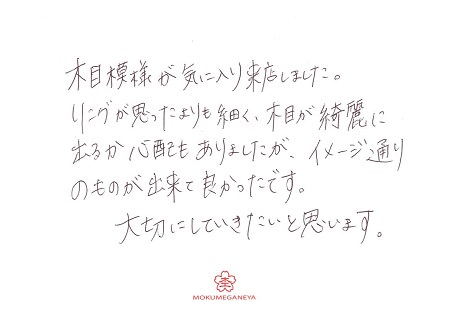 木目模様が気に入り来店しました。
リングが思ったよりも細く、木目が綺麗に
出るか心配もありましたが、イメージ通り
のものが出来て良かったです。
大切にしていきたいと思います。
杢
MOKUMEGANEYA